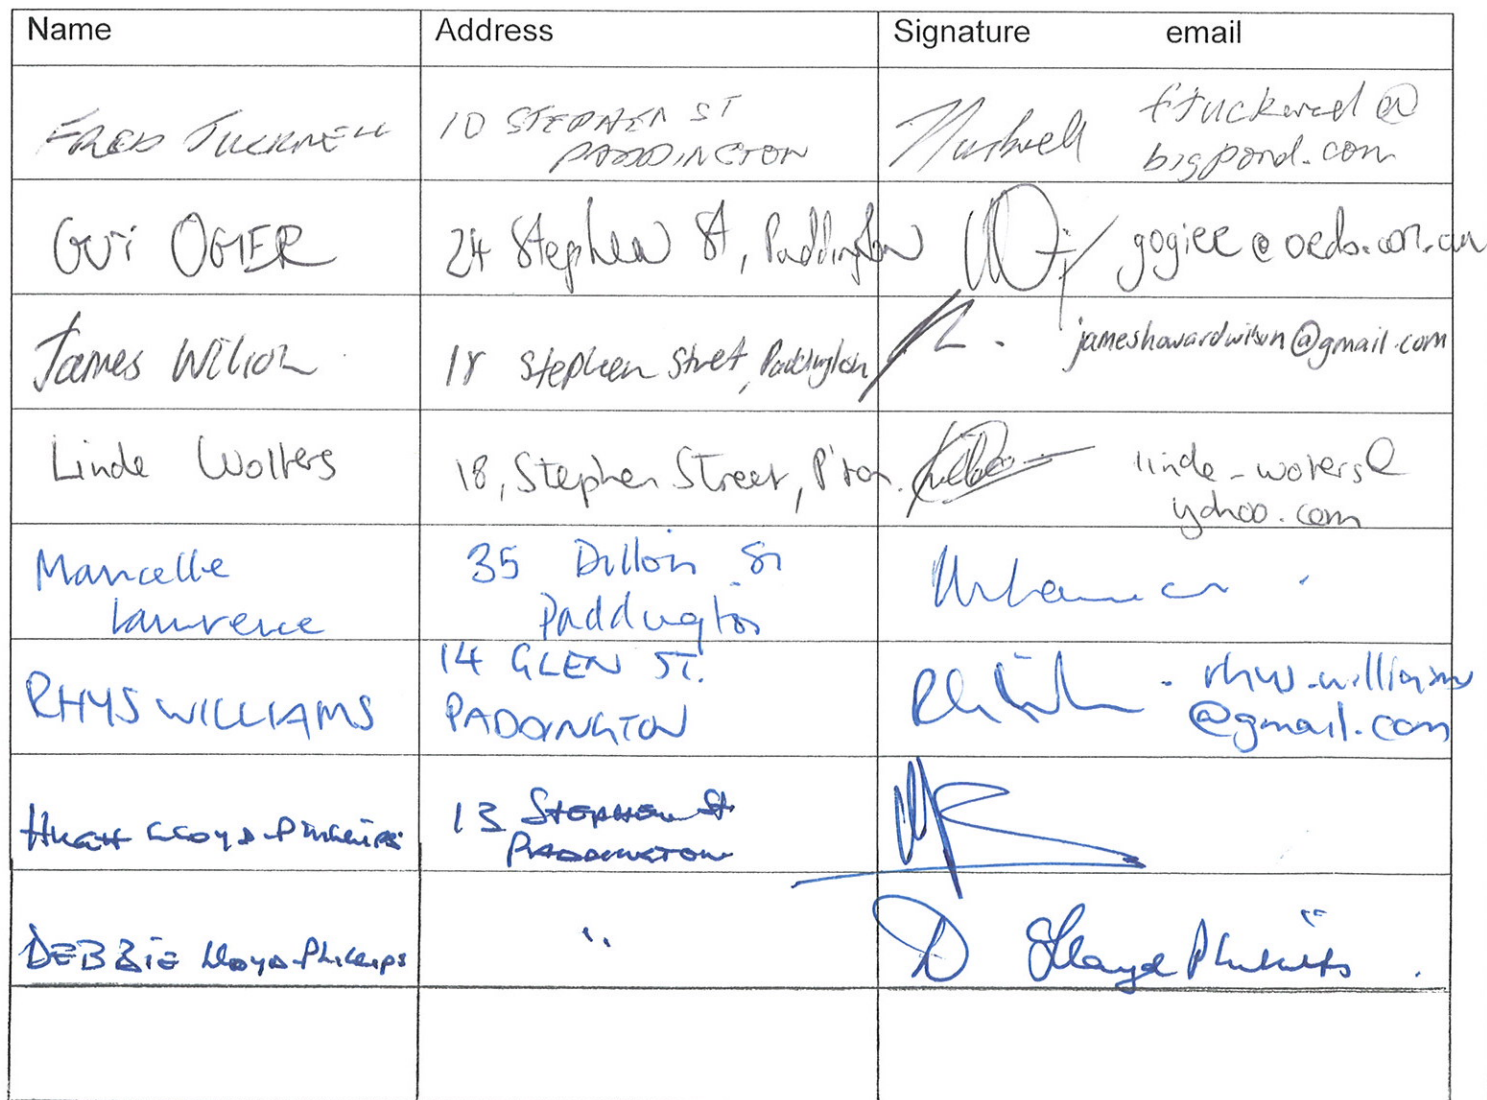 Name Address Signature email
FRED TUCKNELL 10 STEPHEN ST ftucknell@
PADDINGTON bigpond.com
GUI OGIER 24 Stephen St, Paddington
James Wilson 18 Stephen Street, Paddington jameshowardwilson@gmail.com
Linde Wolters 18, Stephen Street, P'ton. linde_wolters@
yahoo.com
Marcelle 35 Dillon St
Lawrence Paddington
14 GLEN ST.
RHYS WILLIAMS PADDINGTON rhys.williams
@gmail.com
HUGH LLOYD-PHILLIPS 13 STEPHEN St
PADDINGTON
DEBBIE Lloyd-Phillips " D Lloyd Phillips "